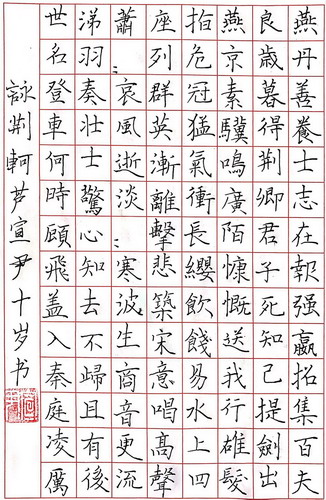 燕丹善養士志在報强嬴拓集百夫
良歲暮得荆卿君子死知己提劍出
燕京素驥鳴廣陌慷慨送我行雄髮
指危冠猛氣衝長纓飲餞易水上四
座列群英漸離擊悲築宋意唱高聲
蕭々哀風逝淡々寒波生商音更流
涕羽奏壯士驚心知去不歸且有後
世名登車何時顧飛盖入秦庭凌厲
詠荆軻芦宣尹十岁书